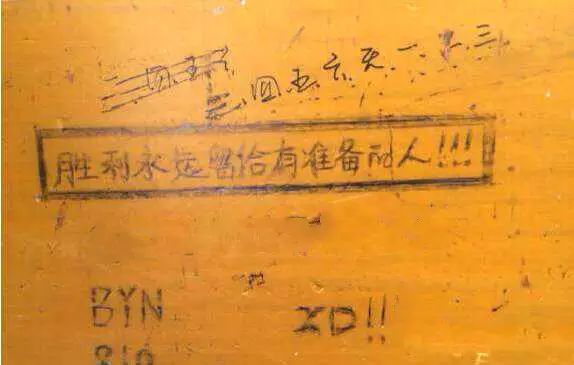 三、四、五、六、天、一、二、三
胜利永远留给有准备的人!!!
BYN
XD!!